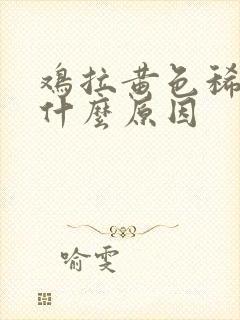 鸡拉黄色稀
什麼原因
喻雯